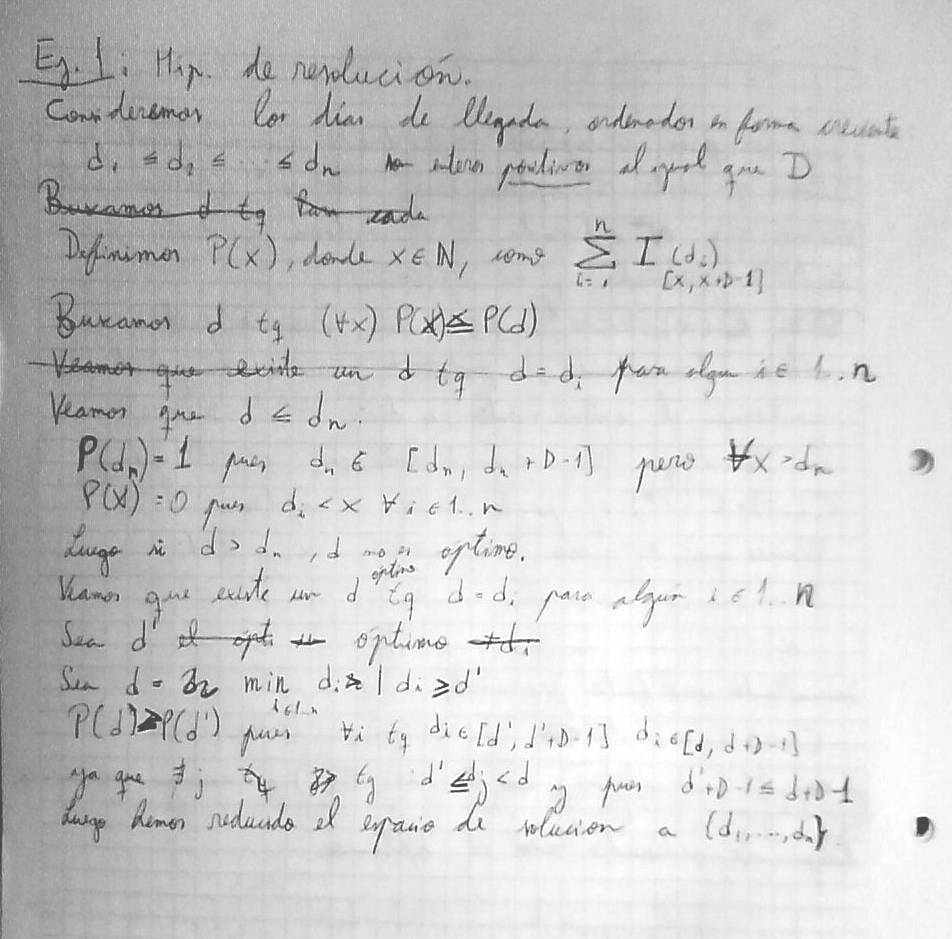 Ej. 1: Hip. de resolución.
Consideremos los días de llegada, ordenados en forma creciente
d₁ ≤ d₂ ≤ ... ≤ dₙ son enteros positivos al igual que D
Buscamos d tq cada
Definimos P(x), donde x ∈ ℕ, como Σᵢ₌₁ⁿ I[x, x+D-1] (dᵢ)
Buscamos d tq (∀x) P(x) ≤ P(d)
Veamos que existe un d tq d = dᵢ para algún i ∈ 1..n
Veamos que d ≤ dₙ.
P(dₙ) = 1 pues dₙ ∈ [dₙ, dₙ + D-1] pero ∀x > dₙ
P(x) = 0 pues dᵢ < x ∀ i ∈ 1..n
Luego si d > dₙ, d no es óptimo.
Veamos que existe un d óptimo tq d = dᵢ para algún i ∈ 1..n
Sea d' el ópti óptimo ≠ dᵢ
Sea d = min i∈1..n dᵢ | dᵢ ≥ d'
P(d) ≥ P(d') pues ∀i tq dᵢ ∈ [d', d'+D-1] dᵢ ∈ [d, d+D-1]
ya que ∄ j tq d' ≤ dⱼ < d y pues d'+D-1 ≤ d+D-1
Luego hemos reducido el espacio de solución a {d₁, ..., dₙ}.